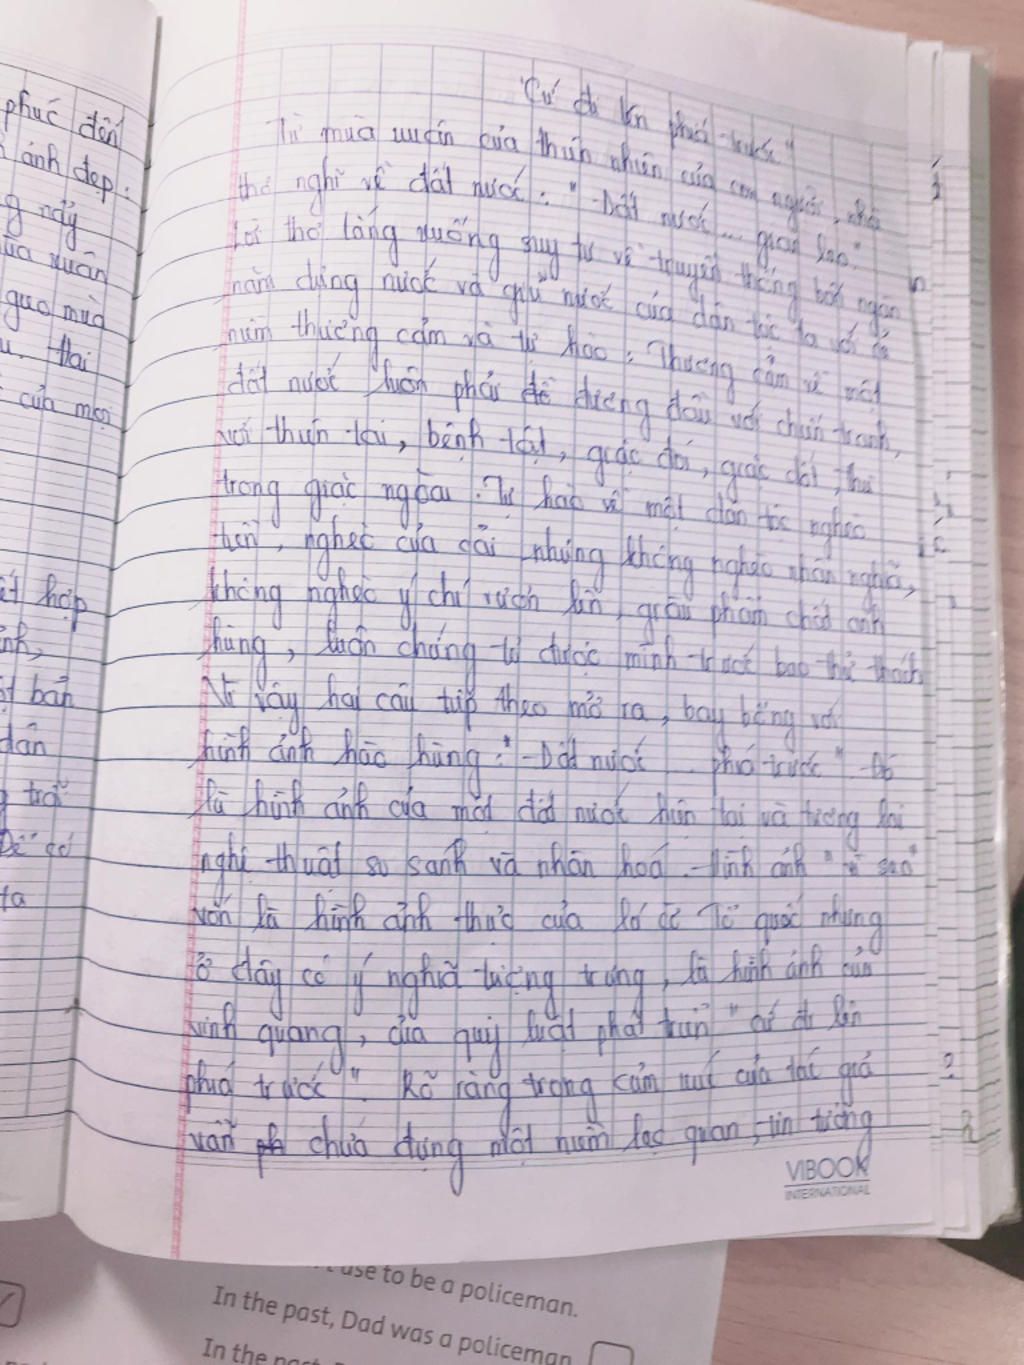 phúc đến
ảnh đẹp.
g nảy
ùa xuân
qua mùa
u. Hai
của mọi
ết hợp
nh,
ột bản
dân
g trời
Để có
ta
"Cứ đi lên phía trước"
Từ mùa xuân của thiên nhiên của con người, nhà
thơ nghĩ về đất nước: "Đất nước... gian lao".
Lời thơ lắng xuống suy tư về truyền thống bốn ngàn
năm dựng nước và giữ nước của dân tộc ta với cả
niềm thương cảm và tự hào: Thương cảm về một
đất nước luôn phải để đương đầu với chiến tranh,
với thiên tai, bệnh tật, giặc đói, giặc dốt, thù
trong giặc ngoài. Tự hào về một dân tộc nghèo
tiền, nghèo của cải nhưng không nghèo nhân nghĩa,
không nghèo ý chí vươn lên, giàu phẩm chất anh
hùng, luôn chứng tỏ được mình trước bao thử thách
Vì vậy hai câu tiếp theo mở ra, bay bổng với
hình ảnh hào hùng: "Đất nước... phía trước" Đó
là hình ảnh của một đất nước hiện tại và tương lai
nghệ thuật so sánh và nhân hoá. Hình ảnh "vì sao"
vốn là hình ảnh thực của lá cờ Tổ quốc nhưng
ở đây có ý nghĩa tượng trưng, là hình ảnh của
vinh quang, của quy luật phát triển "cứ đi lên
phía trước". Rõ ràng trong cảm xúc của tác giả
vẫn chứa đựng một niềm lạc quan, tin tưởng
VIBOOK
INTERNATIONAL
use to be a policeman.
In the past, Dad was a policeman
In the past,